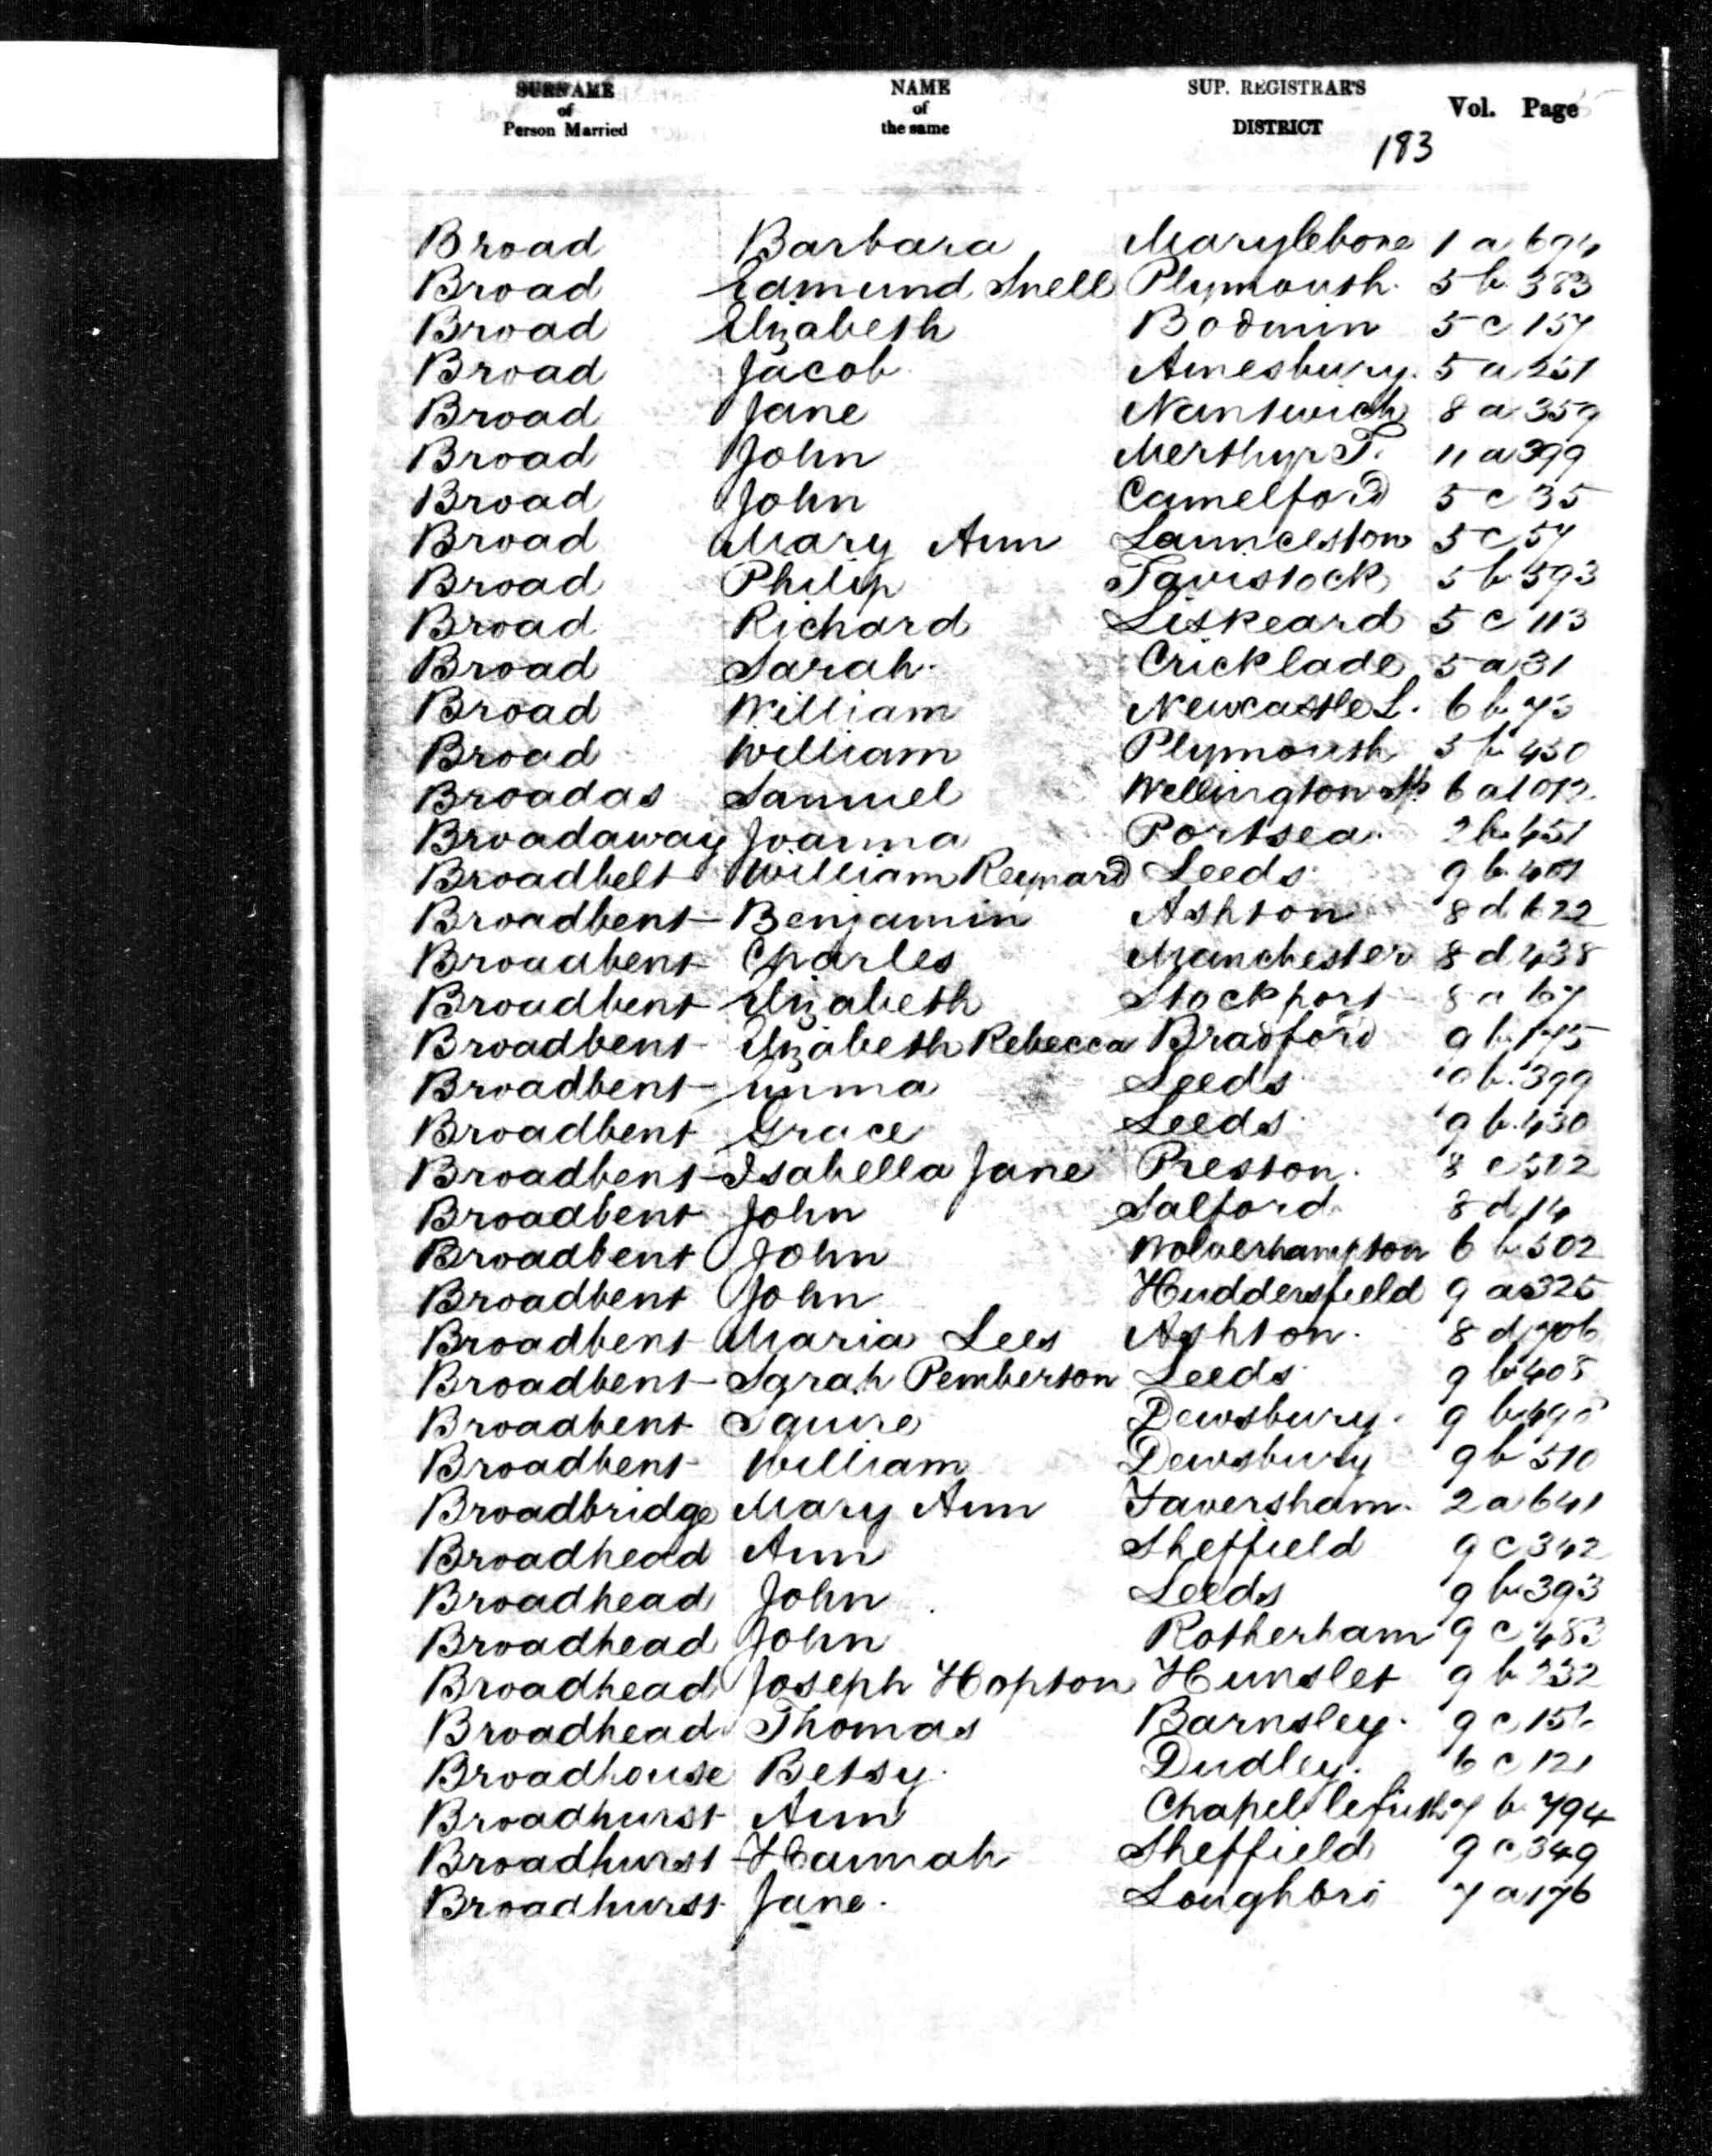 SURNAME of Person Married NAME of the same SUP. REGISTRAR'S DISTRICT Vol. Page
183
Broad Barbara Marylebone 1 a 694
Broad Edmund Snell Plymouth. 5 b 383
Broad Elizabeth Bodmin 5 c 157
Broad Jacob Amesbury. 5 a 251
Broad Jane Nantwich 8 a 359
Broad John Merthyr T. 11 a 399
Broad John Camelford 5 c 35
Broad Mary Ann Launceston 5 c 57
Broad Philip Tavistock 5 b 593
Broad Richard Liskeard 5 c 113
Broad Sarah. Cricklade 5 a 31
Broad William Newcastle L. 6 b 73
Broad William Plymouth 5 b 450
Broadas Samuel Wellington 6 a
Broadaway Joanna Portsea. 2 b 451
Broadbelt William Reynard Leeds 9 b 401
Broadbent Benjamin Ashton 8 d 622
Broadbent Charles Manchester 8 d 438
Broadbent Elizabeth Stockport 8 a 67
Broadbent Elizabeth Rebecca Bradford 9 b 175
Broadbent Emma Leeds 9 b 399
Broadbent Grace Leeds 9 b 430
Broadbent Isabella Jane Preston. 8 e 502
Broadbent John Salford 8 d 14
Broadbent John Wolverhampton 6 b 502
Broadbent John Huddersfield 9 a 325
Broadbent Maria Lees Ashton. 8 d 706
Broadbent Sarah Pemberton Leeds 9 b 408
Broadbent Squire Dewsbury. 9 b
Broadbent William Dewsbury 9 b 510
Broadbridge Mary Ann Faversham. 2 a 641
Broadhead Ann Sheffield 9 c 342
Broadhead John Leeds 9 b 393
Broadhead John Rotherham 9 c 483
Broadhead Joseph Hopton Hunslet 9 b 232
Broadhead Thomas Barnsley. 9 c
Broadhouse Betsy. Dudley. 6 c 121
Broadhurst Ann Chapel le frith 7 b 794
Broadhurst Hannah Sheffield 9 c 349
Broadhurst Jane. Loughbro 7 a 176